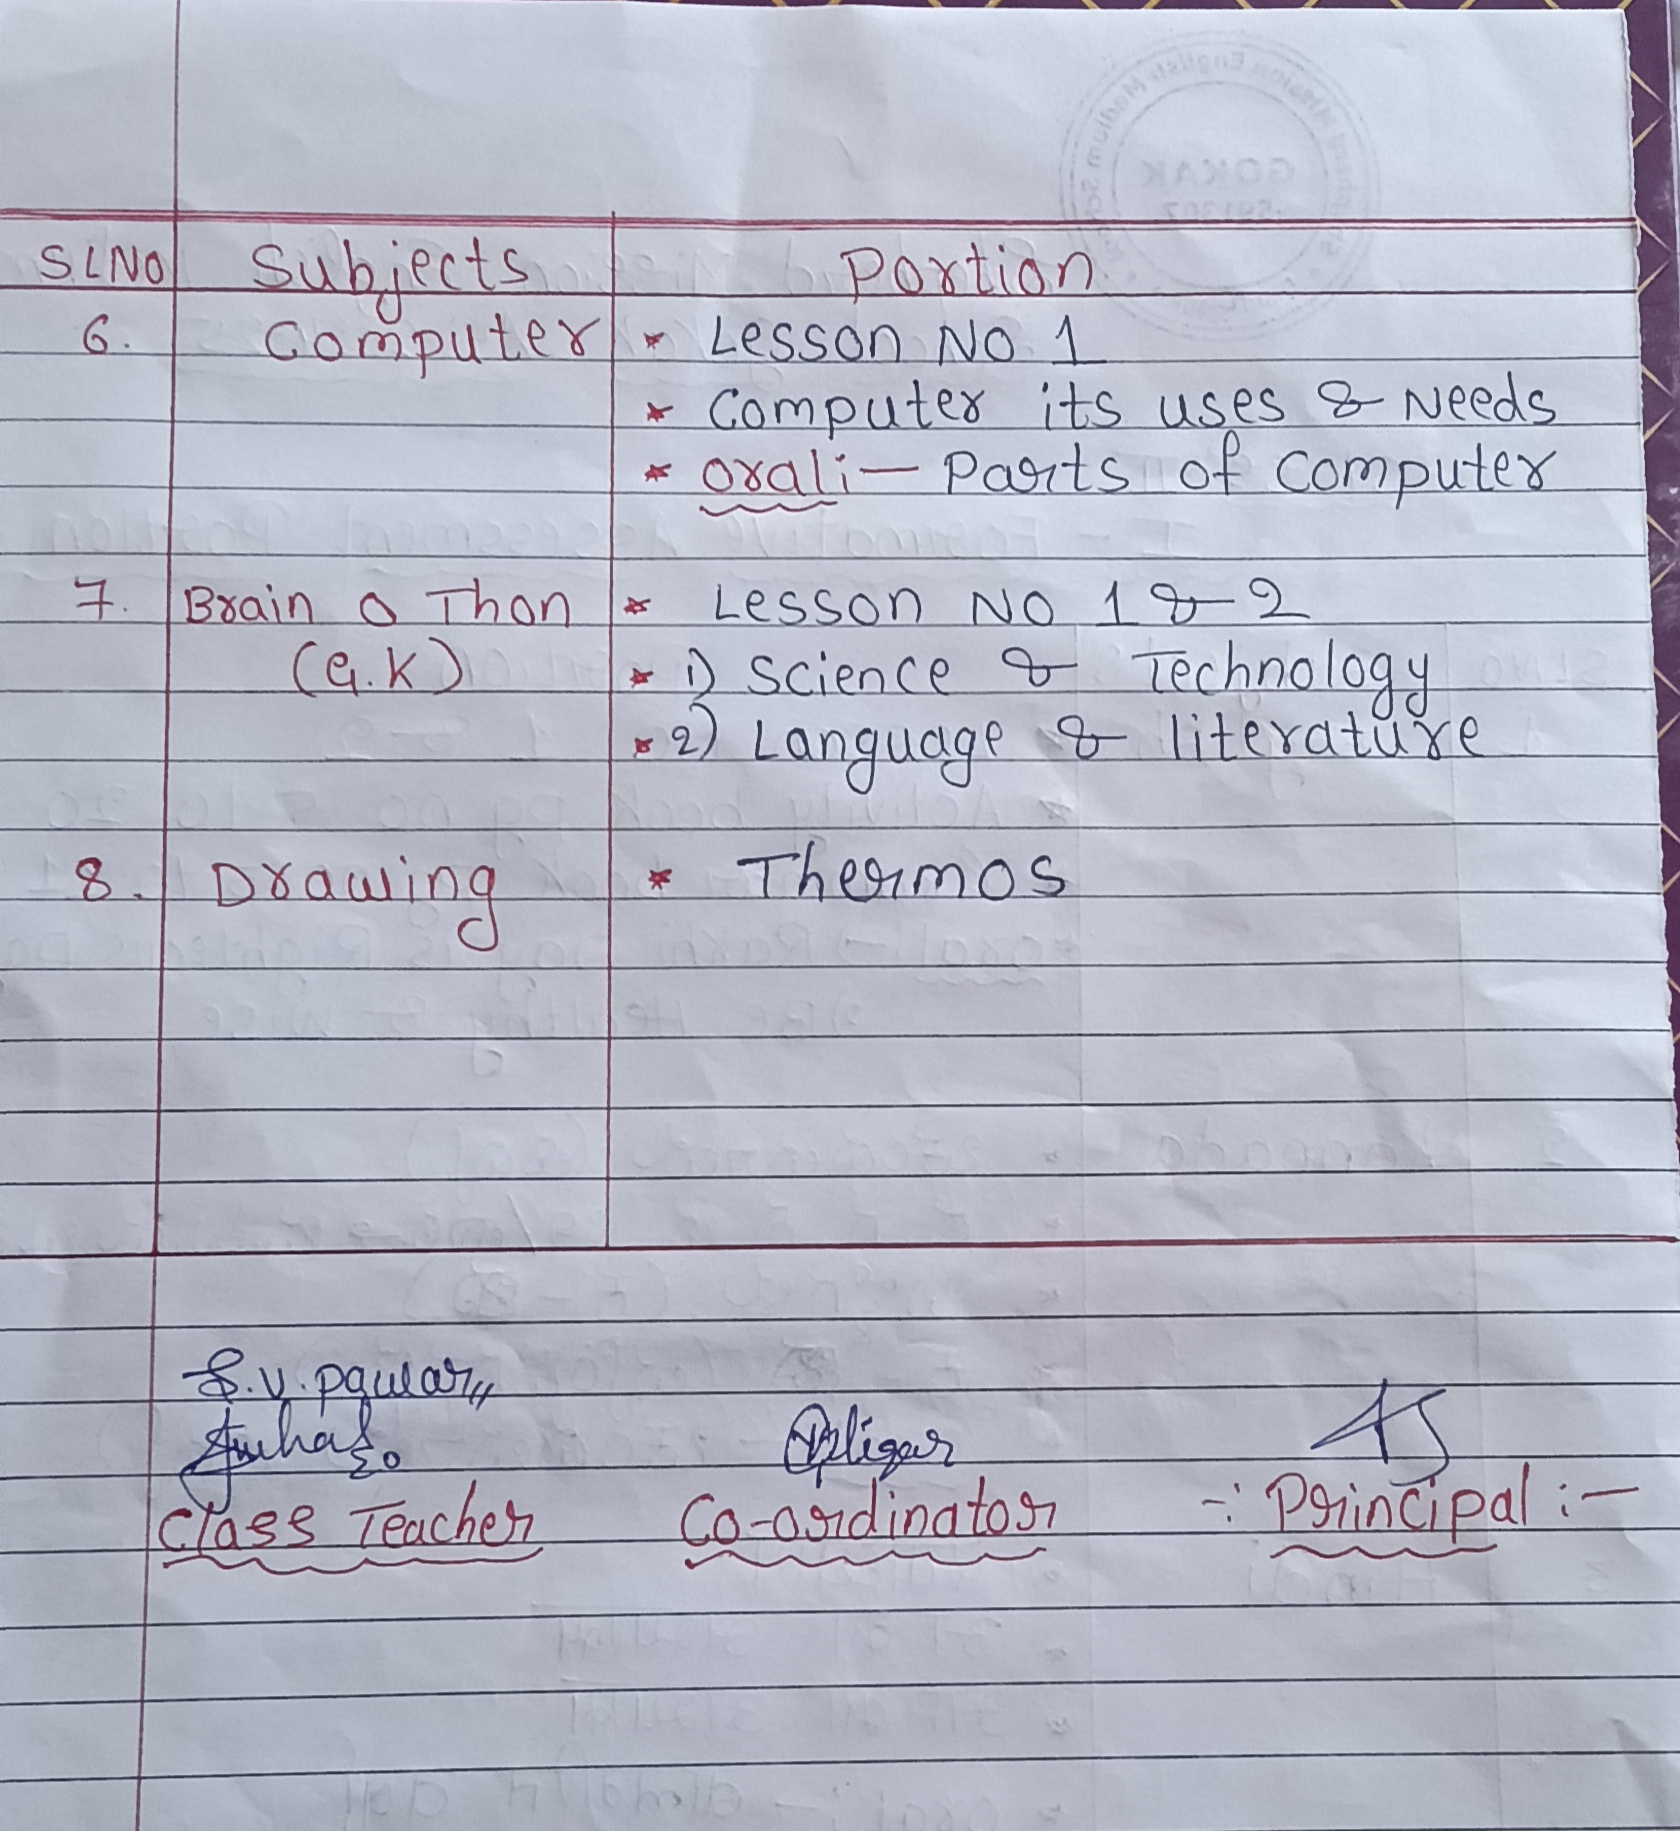 SLNO Subjects Portion
6. Computer * Lesson No 1
* Computer its uses & Needs
* oral:- Parts of Computer
7. Brain O Thon * Lesson No 1 & 2
(G.K) * 1) Science & Technology
* 2) Language & literature
8. Drawing * Thermos
S.V. Pawar
Class Teacher Co-ordinator -: Principal :-
GOKAK
591307